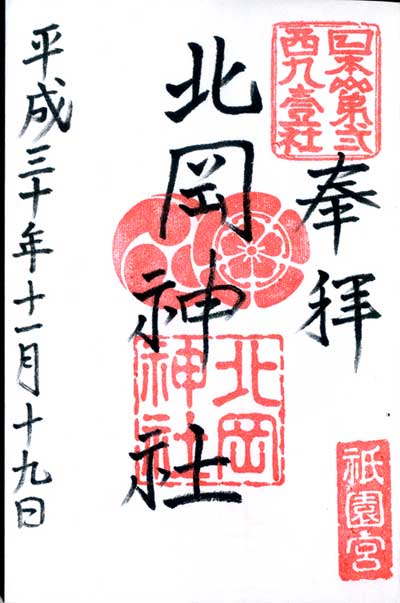 日本第弐
西九壹社
奉拝
祇園宮
北岡神社
北岡
神社
平成三十年十一月十九日